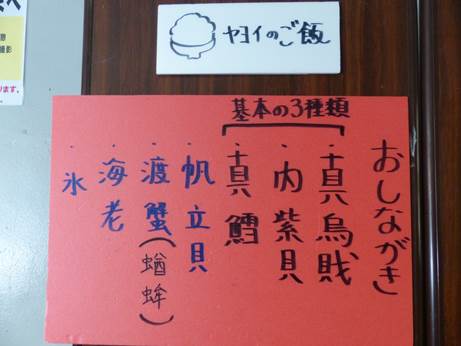 ヤヨイのご飯
おしながき
基本の3種類
・真烏賊
・内紫貝
・真鱈
・帆立貝
・渡蟹(蝤蛑)
・海老
・氷